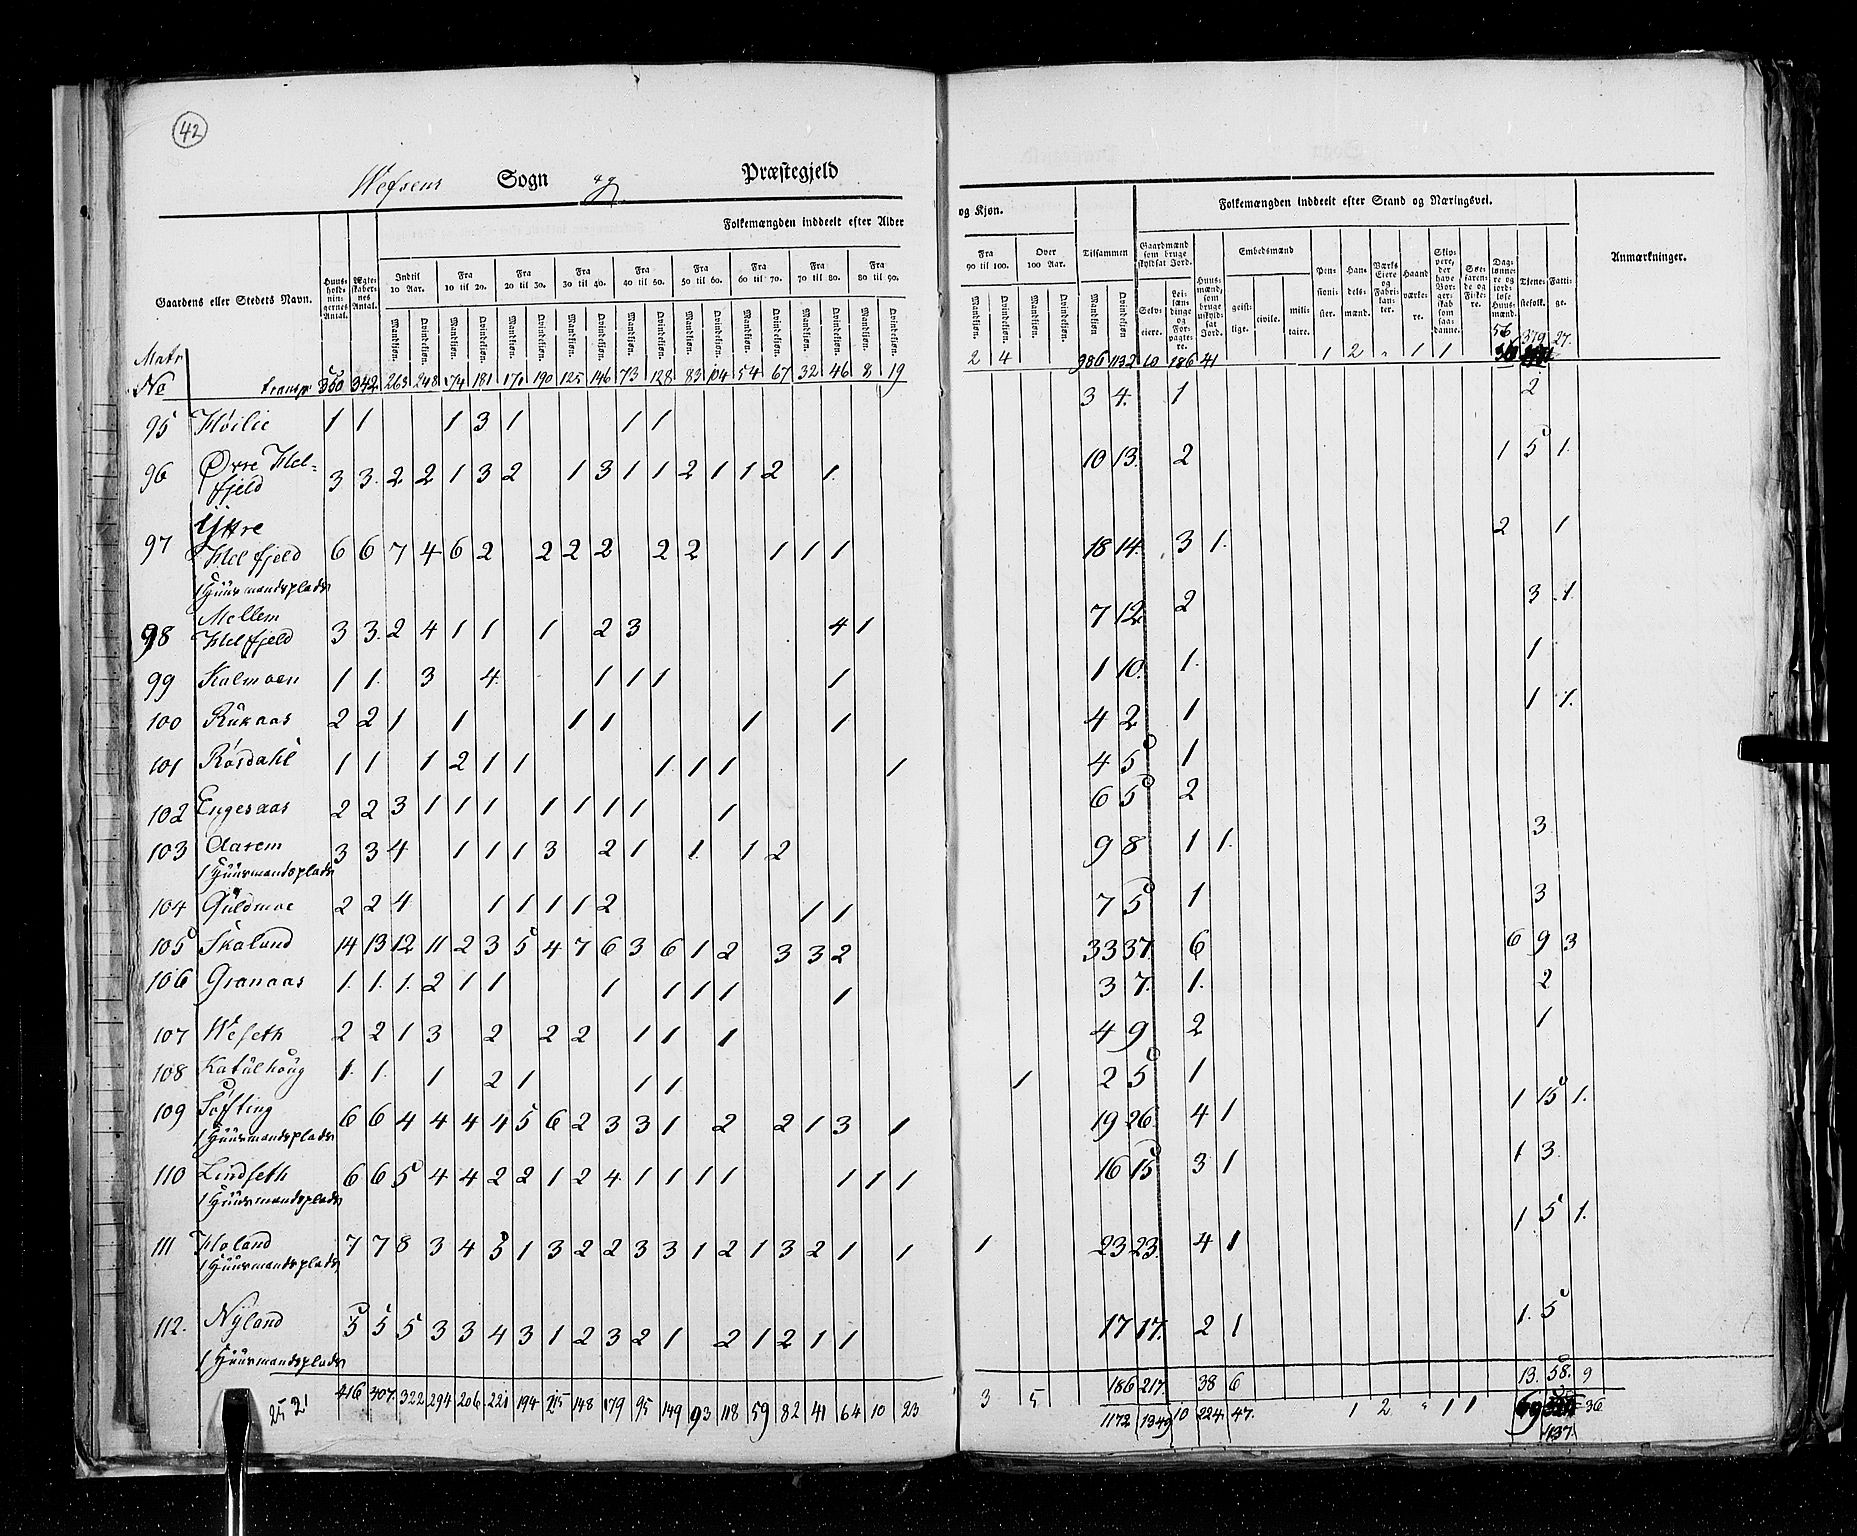 42
Wefsens Sogn og Præstegjeld
Folkemængden inddeelt efter Alder og Kjøn.
Folkemængden inddeelt efter Stand og Næringsvei.
Gaardens eller Stedets Navn.
Huus-holdningernes Antal.
Ægteskabernes Antal.
Indtil 10 Aar. Fra 10 til 20. Fra 20 til 30. Fra 30 til 40. Fra 40 til 50. Fra 50 til 60. Fra 60 til 70. Fra 70 til 80. Fra 80 til 90. Fra 90 til 100. Over 100 Aar. Tilsammen
Mandkjøn. Qvindekjøn.
Gaardmænd som bruge skyldsat Jord.
Selveiere. Leilændinge og Forpagtere.
Huusmænd, som bruge uskyldsat Jord.
Embedsmænd
geistlige. civile. militaire.
Pensionister. Handelsmænd. Værks Eiere og Fabrikanter. Haandværkere. Skippere, der have Borgerskab som saadanne. Søefarende og Fiskere. Daglønnere og jordløse Huusmænd. Tjenestefolk. Fattige.
Anmærkninger.
Matr No transp 360 342 263 248 174 181 171 190 125 146 73 128 83 104 54 67 32 46 8 19 2 4 986 1132 10 186 41 1 2 " 1 1 56 379 27.
95 Høilie 1 1 1 3 1 1 1 3 4. 1 2
96 Øvre Helfjeld 3 3. 2 2 1 3 2 1 3 1 1 2 1 1 2 1. 10 13. 2 1 5 1.
97 Yttre Helfjeld 6 6 7 4 6 2 2 2 2 2 2 1 1 1 18 14. 3 1. 2 1
1 Huusmandsplads
98 Mellem Helfjeld 3 3. 2 4 1 1 1 2 3 4 1 7 12. 2 3 1.
99 Kalmoen 1 1. 3 4. 1 1 1 1 1 10. 1. 1
100 Ruknaas 2 2 1 1 1 1 1 1 4 2 1 1 1.
101 Røsdahl 1 1 1 2 1 1 1. 1 1 1 4 5 1
102 Engesaas 2 2 3 1 1 1 1 1 1 1 1 6 5 2
103 Aarem 3 3 4 1 1 1 3 2 1 1. 1 2 9 8 1 1. 3
1 Huusmandsplads
104 Guldmoe 2 2 4 1 1 1 1 2 1 1 7 5 1 3
105 Skaland 14 13 12 11 2 3 5 4 7 6 3 6 1 2 3 3 2 33 37. 6 6 9 3
106 Granaas 1. 1. 1. 2 1 1 1 1 1 1 1 3 7. 1. 2
107 Wefseth 2 2 1 3 2 2 2 1 1 1 4 9 2 1
108 Katulhoug 1. 1. 1 2 1 1 1 1 2 5 1
109 Søfting 6 6 4 4 4 4 5 6 2 3 3 1 2 2 1 3 1 19 26. 4 1 1 15 1.
1 Huusmandsplads
110 Lindseth 6 6 5 4 4 2 2 1 2 4. 1 1 1 1 1 1 1 16 15 3 1 1 3.
1 Huusmandsplads
111 Holand 7 7 8 3 4 5 1 3 2 2 3 3 1 2 1 3 2 1 1 1 23 23. 4 1 1 5 1.
1 Huusmandsplads
112. Nyland 5 5 5 3 3 4 3 1 2 3 2 1 2 1 2 1 1 17 17. 2 1 1. 5
1 Huusmandsplads
186 217. 38 6 13. 58. 9
2521 416 407. 322 294 206 221 194 215 148 179 95 149 93 118 59 82 41 64 10 23 3 5 1172 1349 10 224. 47. 1 2 " 1 1 69 36
437.